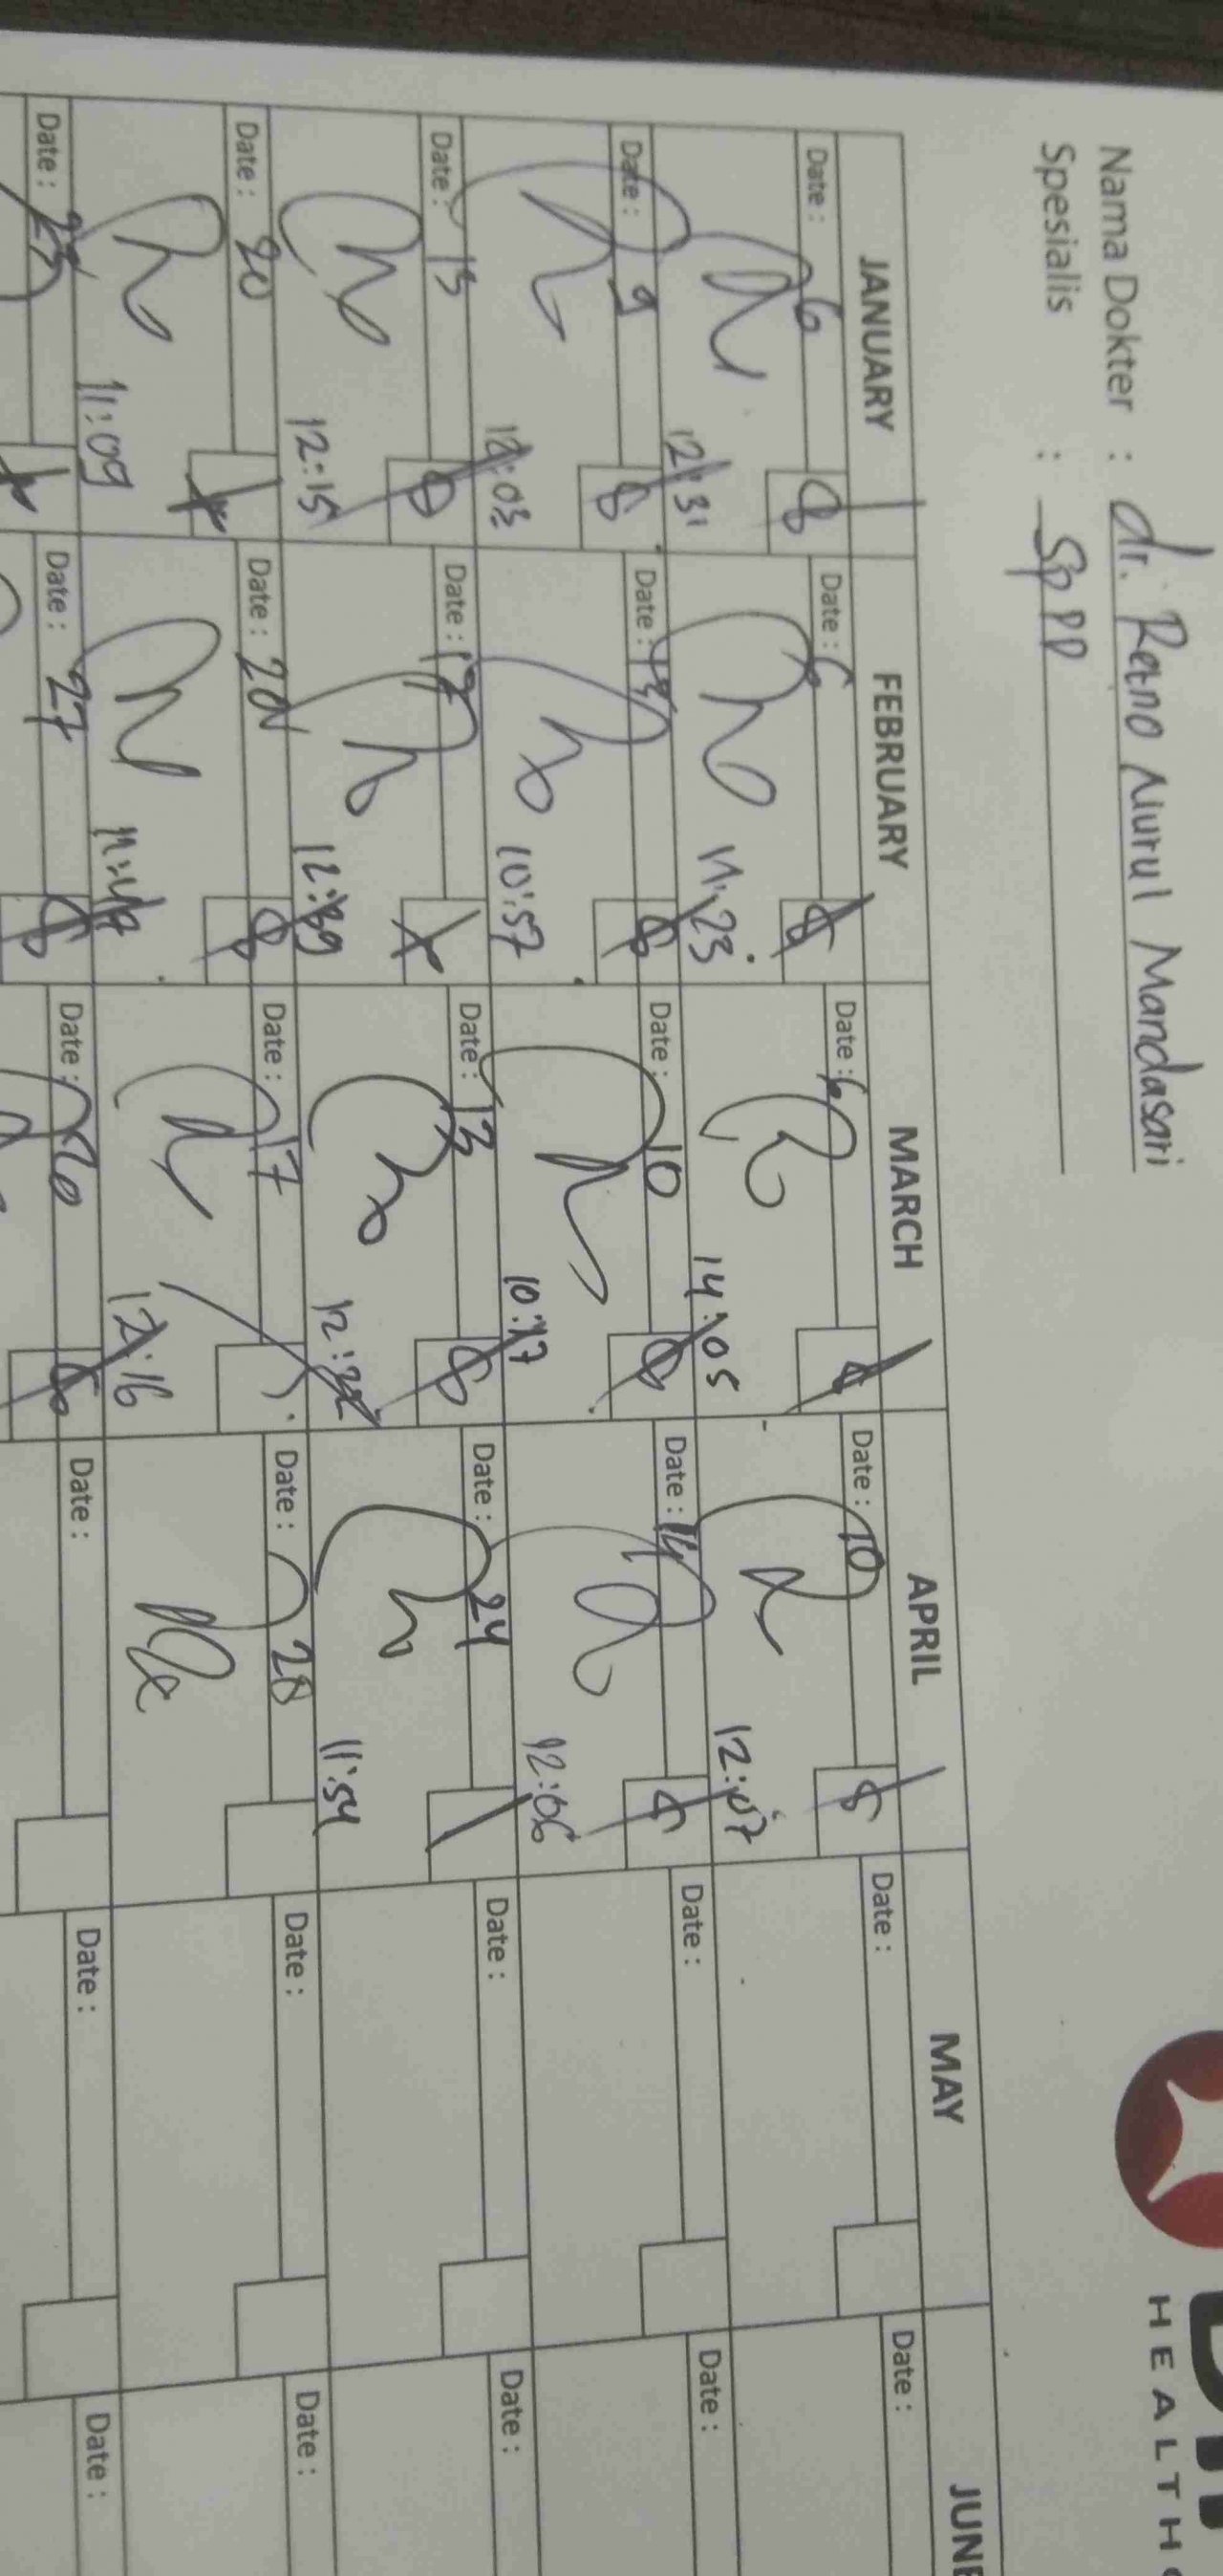 Nama Dokter : dr. Retno Nurul Mandasari
Spesialis : Sp PD
HEALTH
JANUARY FEBRUARY MARCH APRIL MAY JUNE
Date : 6 8 Date : 6 8 Date : 6 Date : 10 8 Date : Date :
12:31 11:23 14:05 12:07
Date : 9 8 Date : 13 8 Date : 10 8 Date : 14 Date : Date :
12:03 10:57 10:47 12:06
Date : 13 8 Date : 17 Date : 13 8 Date : 24 Date : Date :
12:15 12:39 12:22 11:54
Date : 20 Date : 20 8 Date : 17 Date : 28 Date : Date :
11:09 11:49 12:16
Date : 23 Date : 27 8 Date : 26 8 Date : Date : Date :